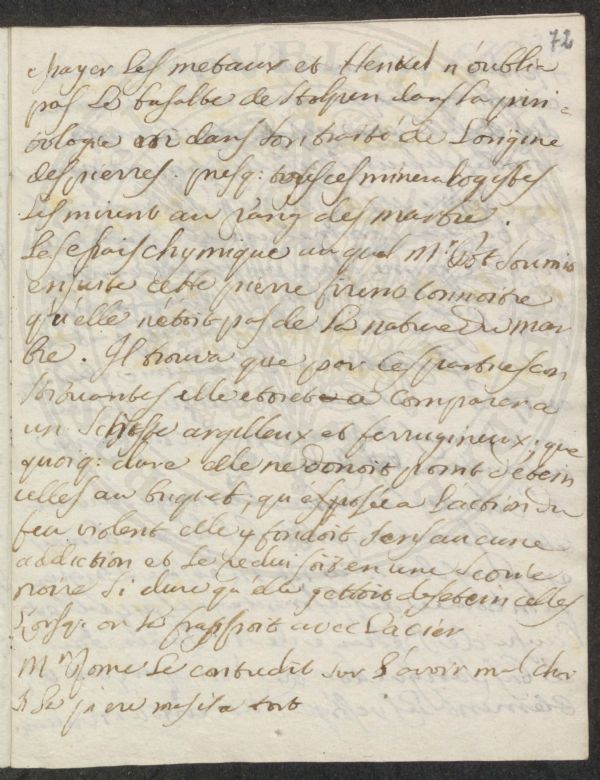 72
essayer les metaux et Henkel n'oublia
pas le basalte de Stolpen dans la piri-
tologie dans son traité de L'origine
des pierres. presq: tous ces mineralogistes
les mirent au rang des marbre.
Les essais chymique auquel Mr. Pot soumit
ensuite cette pierre firent connoitre
qu'elle n'etoit pas de la nature du mar
bre. Il trouva que par les parties con
stituantes elle etoit a comparer a
un Schiste argilleux et ferrugineux; que
quoiq: dure elle ne donoit point d'etein
celles au briquet, qu'exposée a l'action du
feu violent elle y fondoit sans aucune
addiction et se reduisoit en une scorie
noire si dure qu'elle gettoit des eteincelles
Lorsq: on le frappoit avec l'acier
Mr. le contredit sur l'avoir mal choi
si la piere mais il a tort